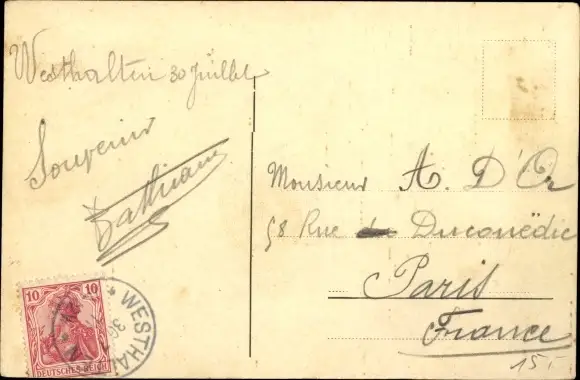 Westhalten 30 Juillet
Souvenir
Monsieur A. D'Or
58 Rue Ducouëdic
Paris
France
10 10
DEUTSCHES REICH
WESTHA
15.-